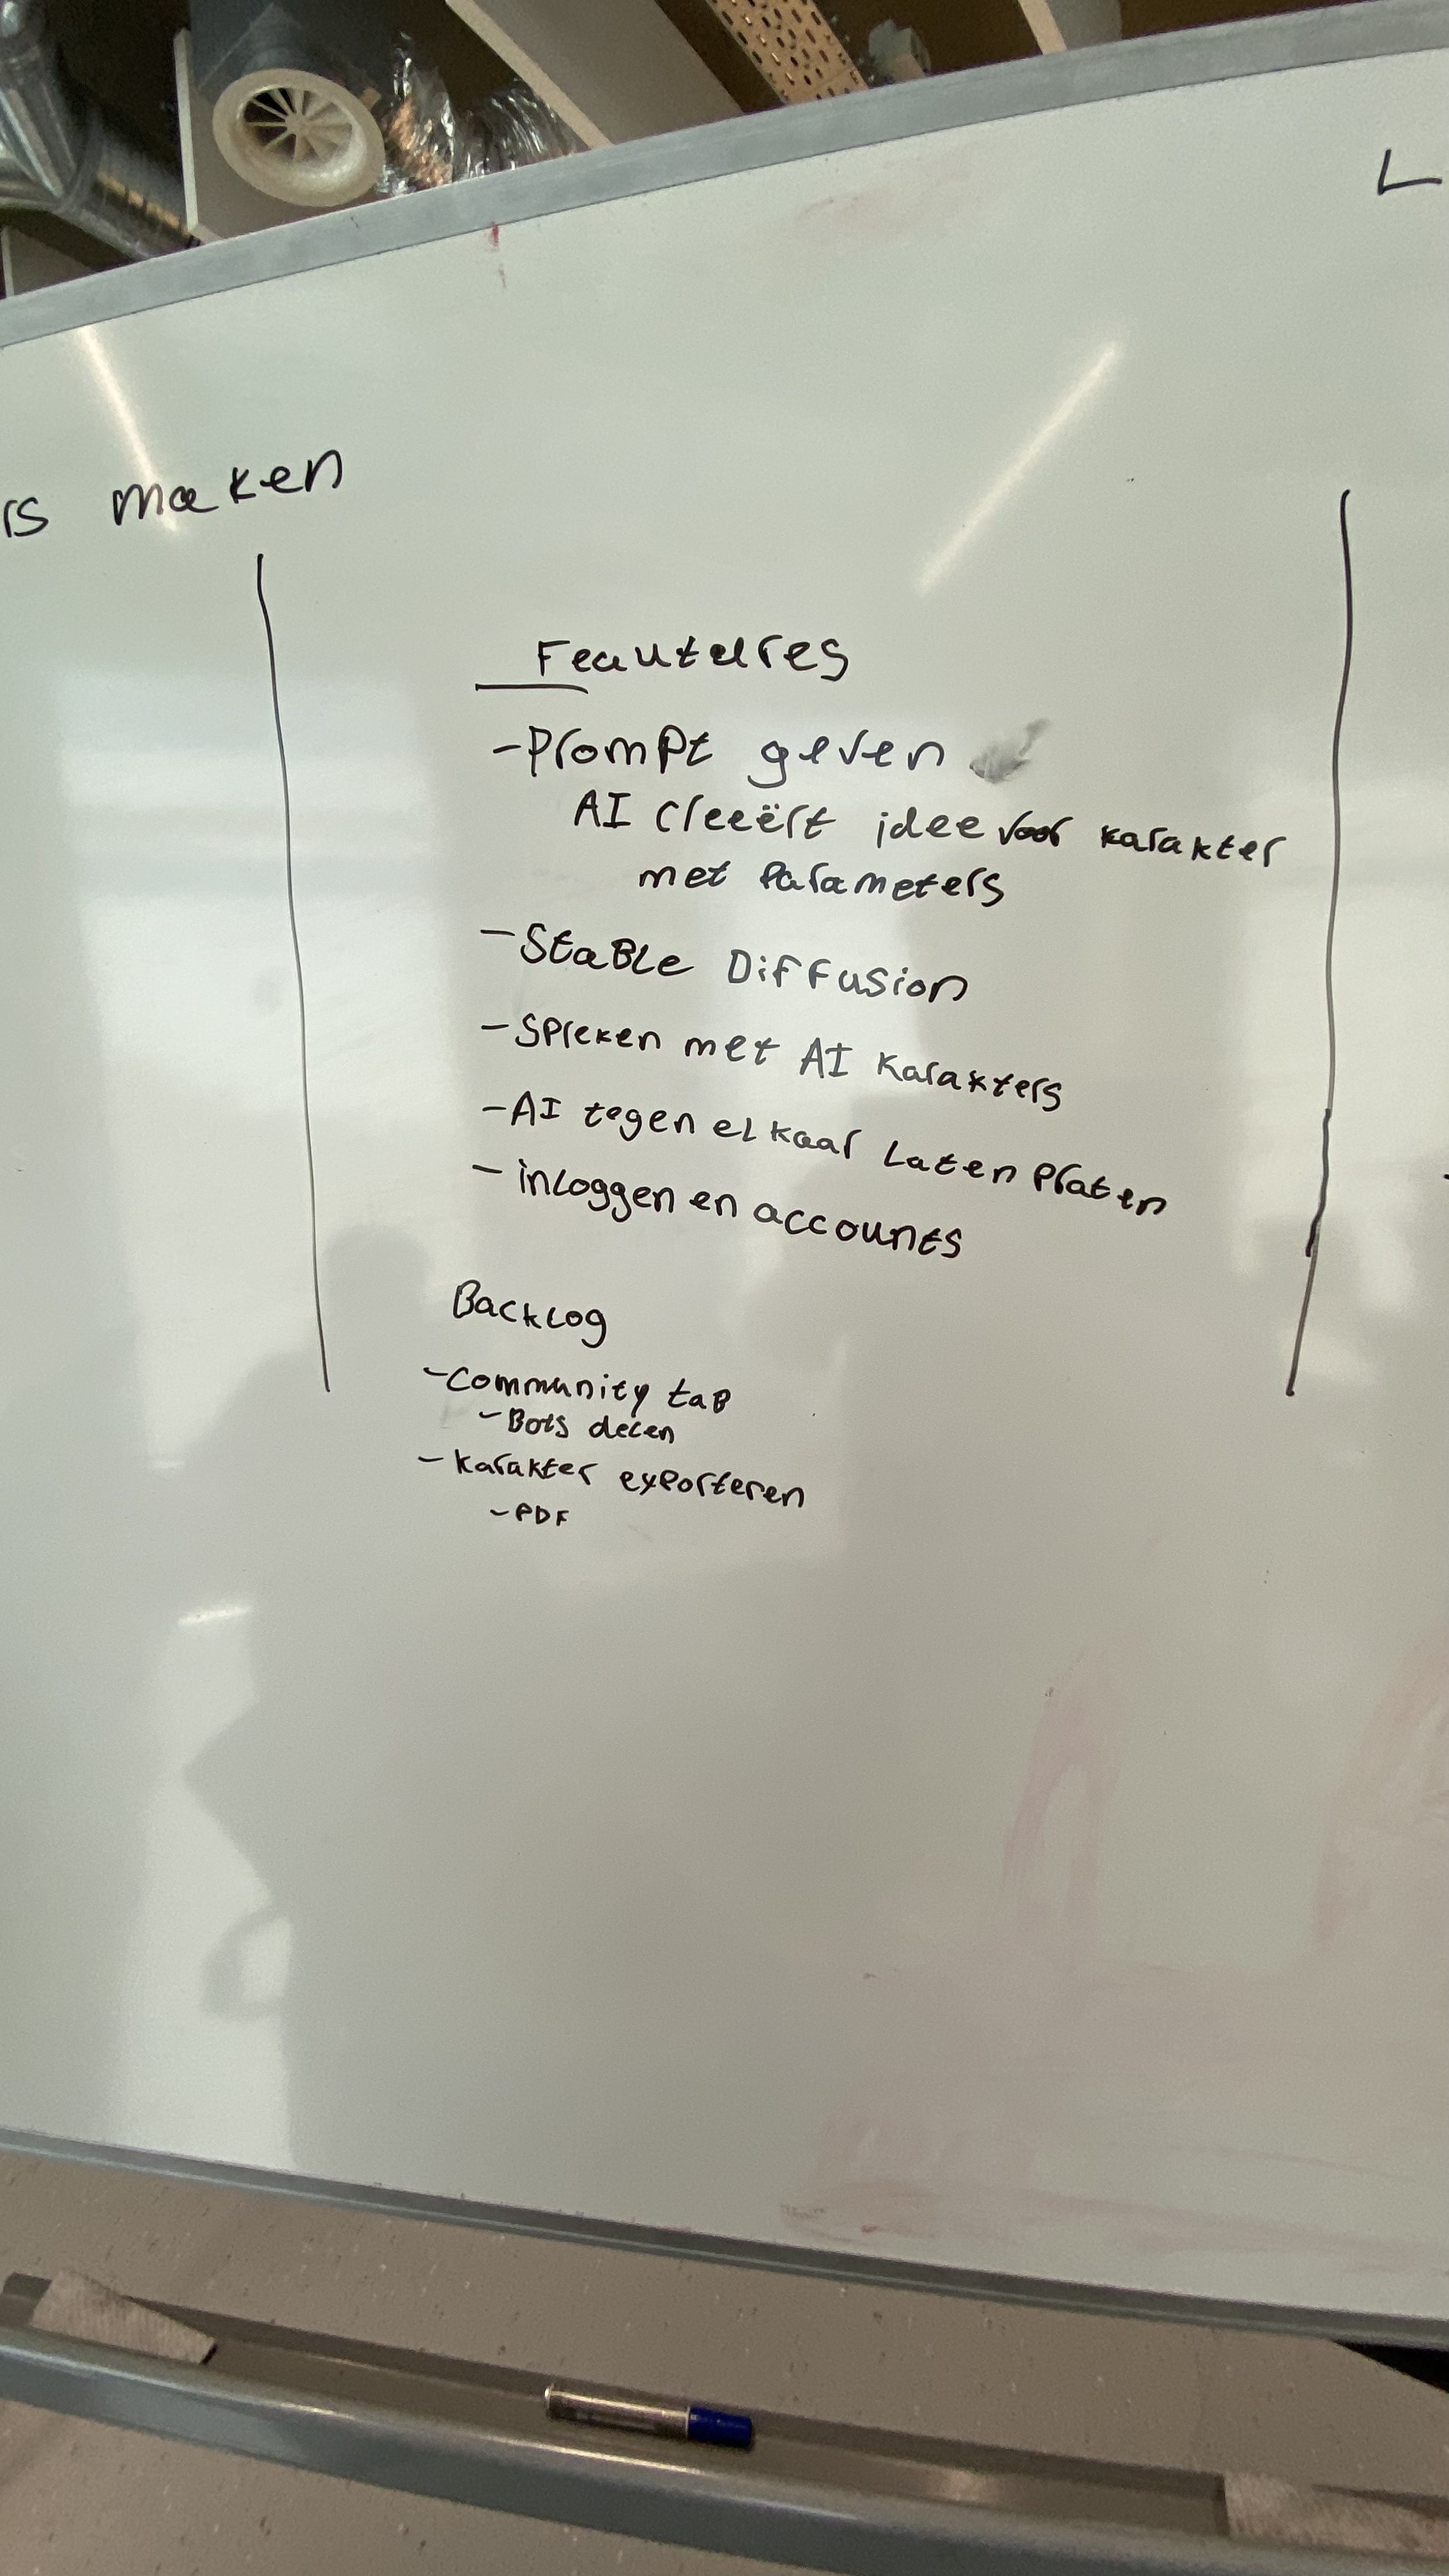 maken
Feautures
-Prompt geven
AI creeërt idee voor karakter
met Parameters
-StaBle Diffusion
-Spreken met AI Karakters
-AI tegen elkaar Laten Praten
-inloggen en accounts
Backlog
-Community taB
-Bots delen
-karakter exporteren
-PDF